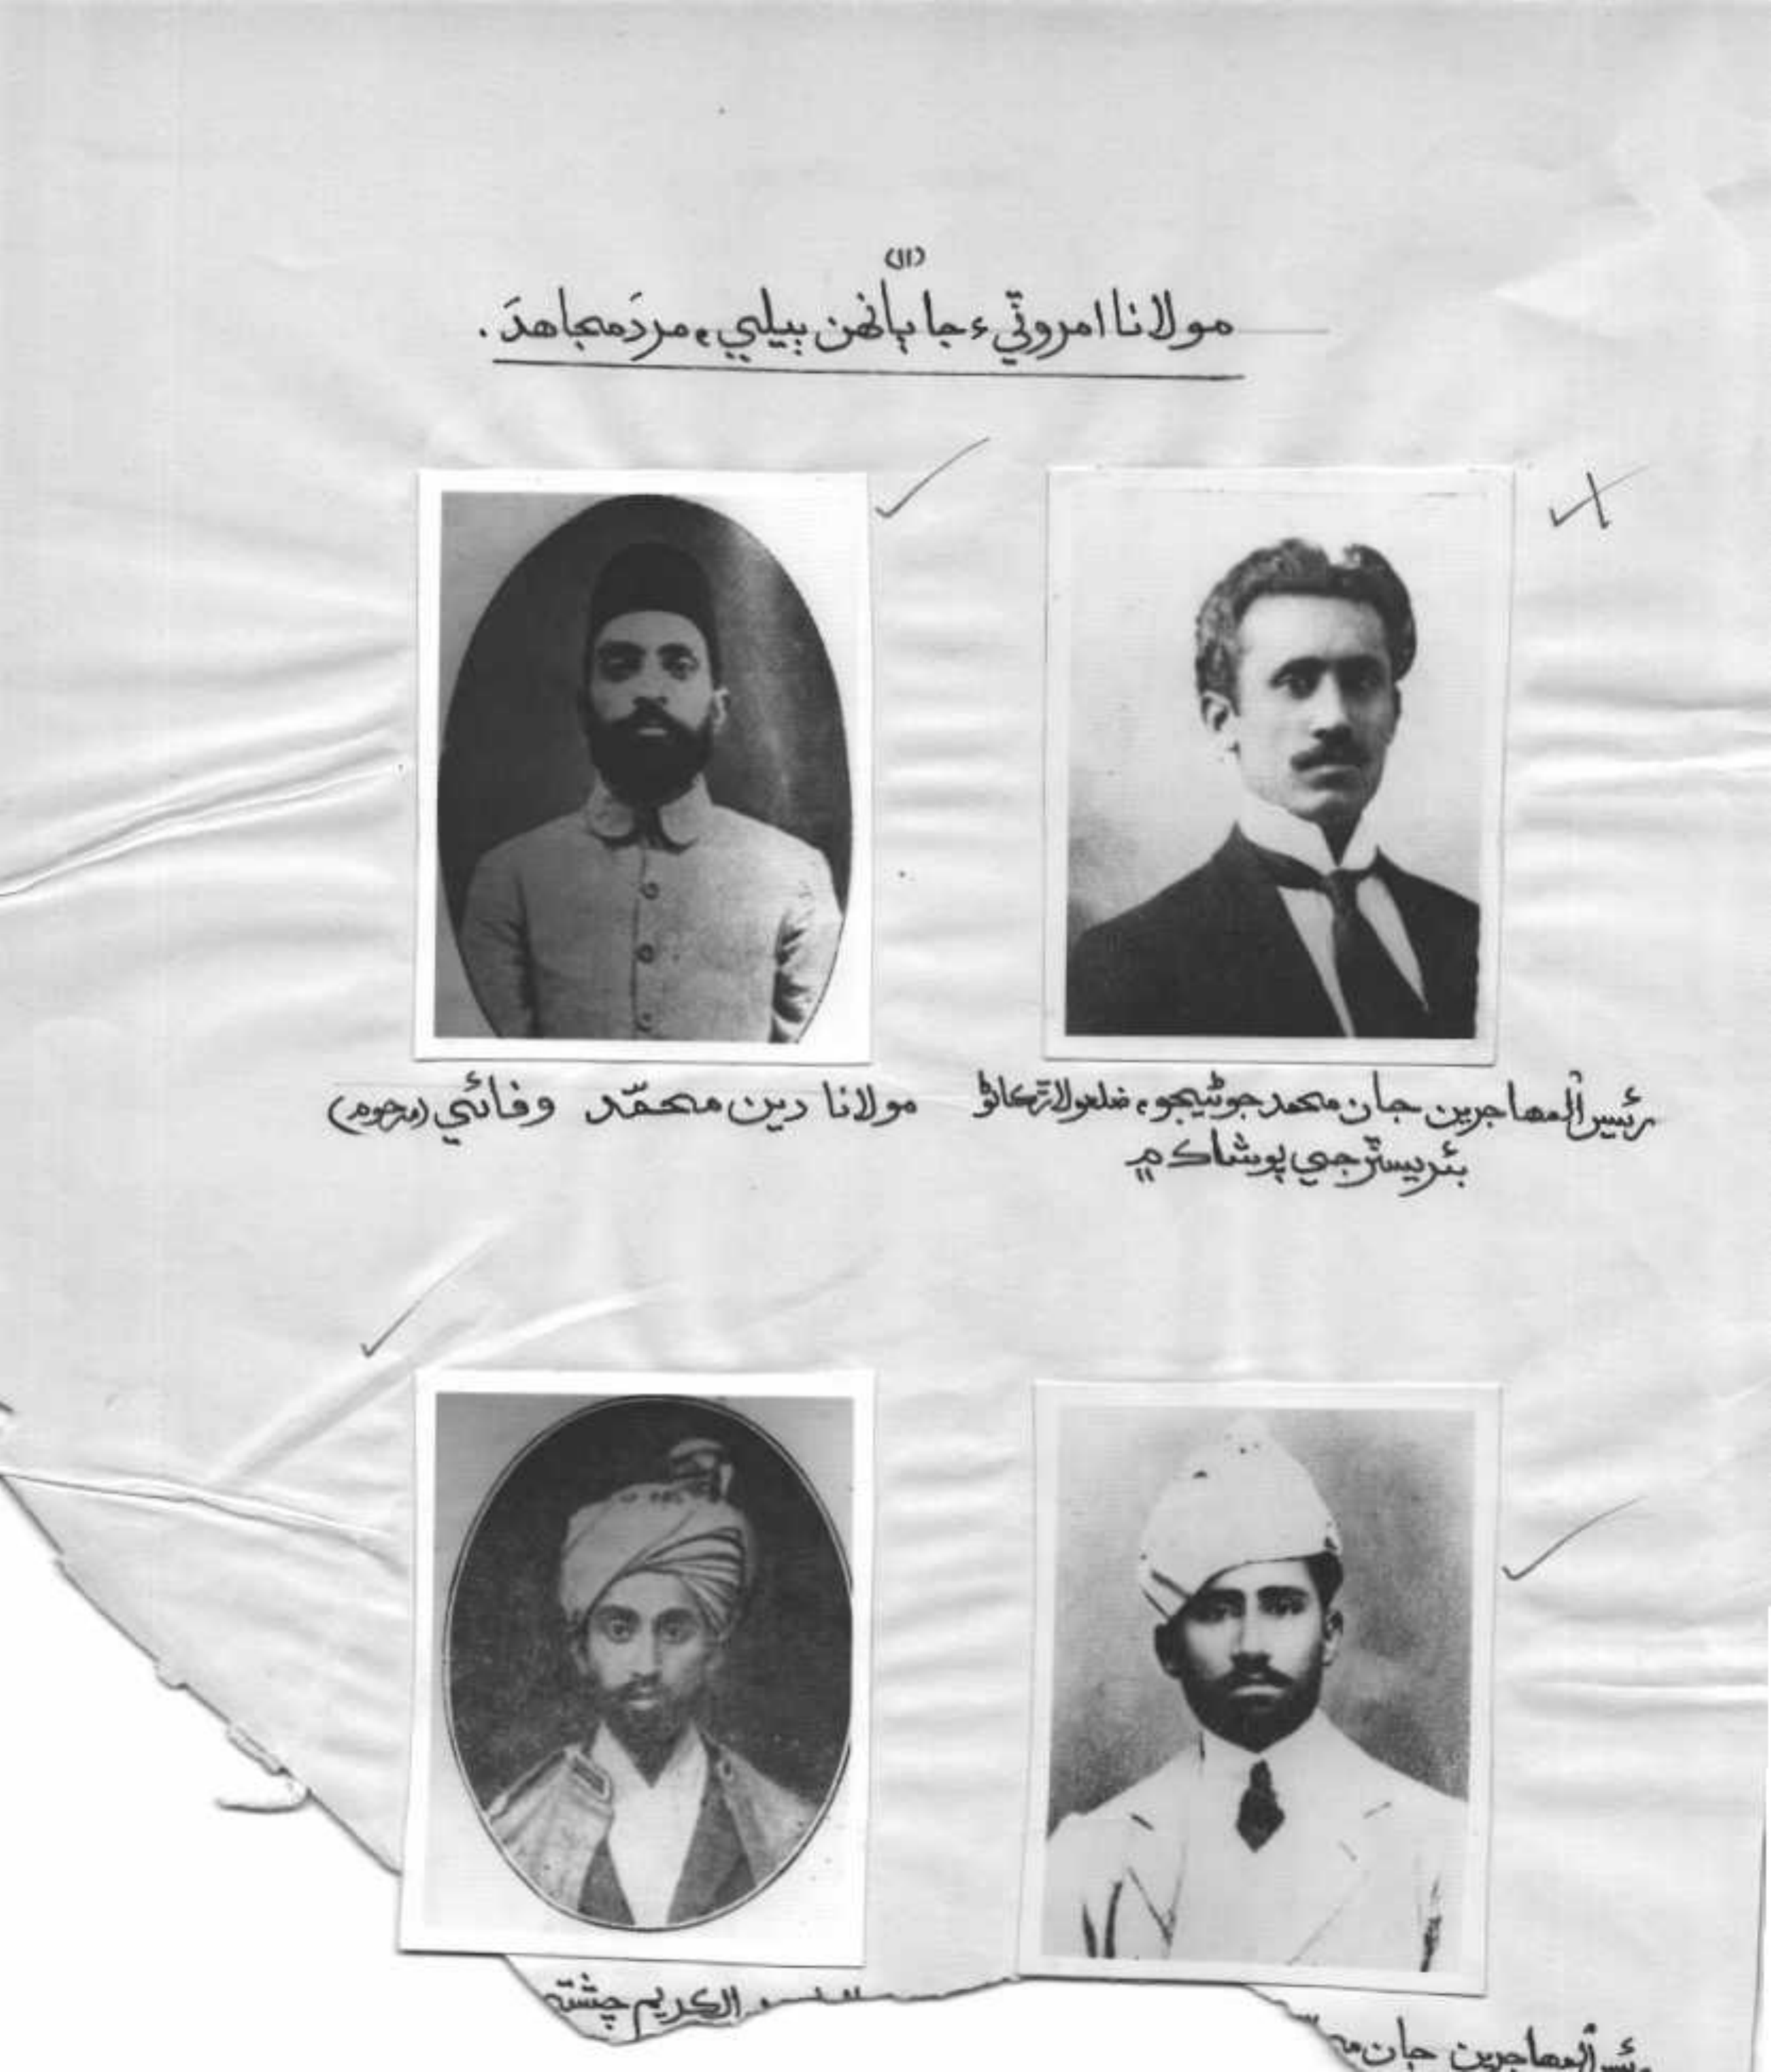 (۱۱)
مولانا امروٽيءَ جا ٻانهن ٻيلي ۽ مردَ مجاهدَ.
رئيس المهاجرين جان محمد جوڻيجو، ضلعو لاڙڪاڻو
بئريسٽر جي پوشاڪ ۾
مولانا دين محمّد وفائي (مرحوم)
رئيس المهاجرين جان
الڪريم چشتي